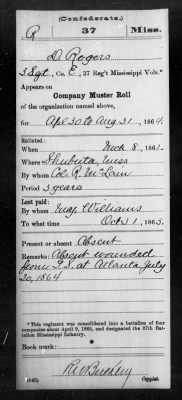 (Confederate.)
R 37 Miss.
D. Rogers
3 Sgt., Co. E, 37 Reg't Mississippi Vols.*
Appears on
Company Muster Roll
of the organization named above,
for Apl 30 to Aug 31, 1864.
Enlisted:
When Mch 8, 1861.
Where Shubuta, Miss
By whom Col. R. McLain
Period 3 years
Last paid:
By whom Maj. Williams
To what time Oct 31, 1863.
Present or absent Absent
Remarks: Absent wounded
from G.S. at Atlanta, July
20, 1864
*This regiment was consolidated into a battalion of four
companies about April 9, 1865, and designated the 37th Bat-
talion Mississippi Infantry.
Book mark:
(642) Copyist.